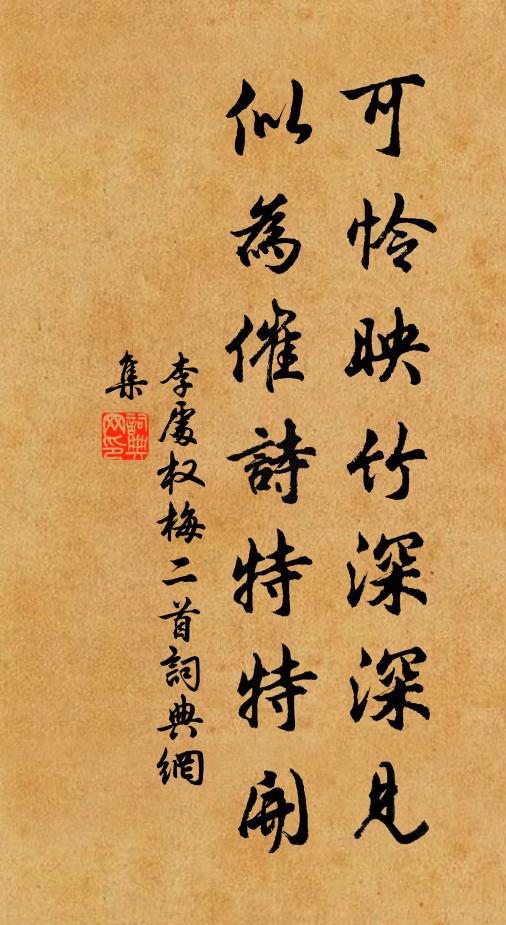 可怜映竹深深見
似為催詩特特開
李處权梅二首詞典網
集
詞典网印